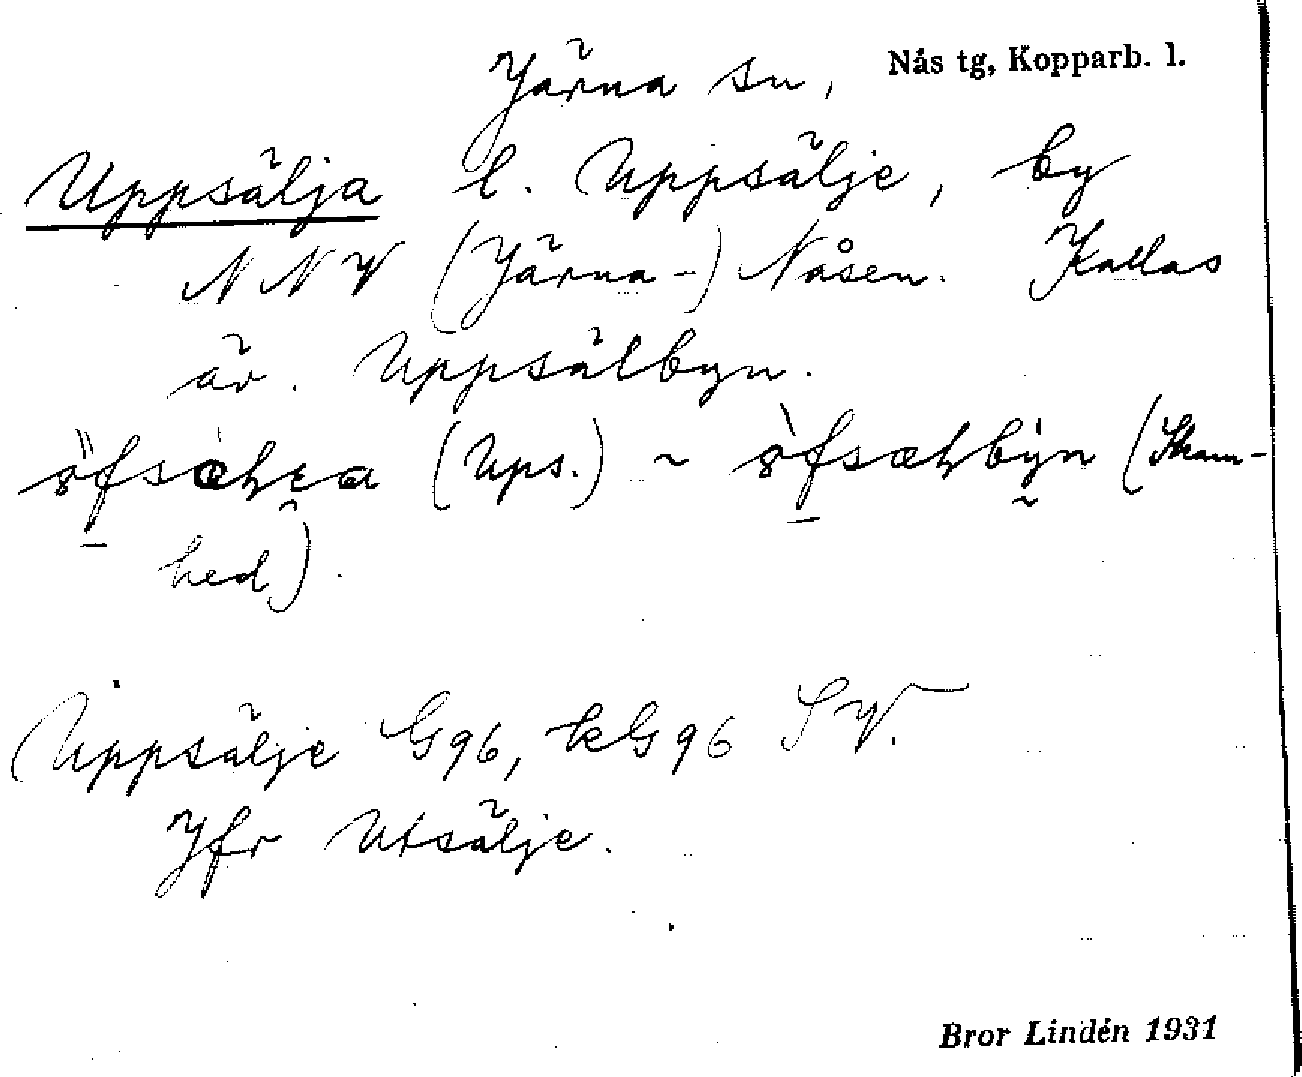 Järna sn, Nås tg, Kopparb. l.
Uppsälja l. Uppsälje, by
NNV (Järna-) Nåsen. Kallas
äv. Uppsälbyn.
(Ups.) ~ (Skam-
hed).
(Uppsälje G96, kG96 SV.
Jfr Utsälje.
Bror Lindén 1931